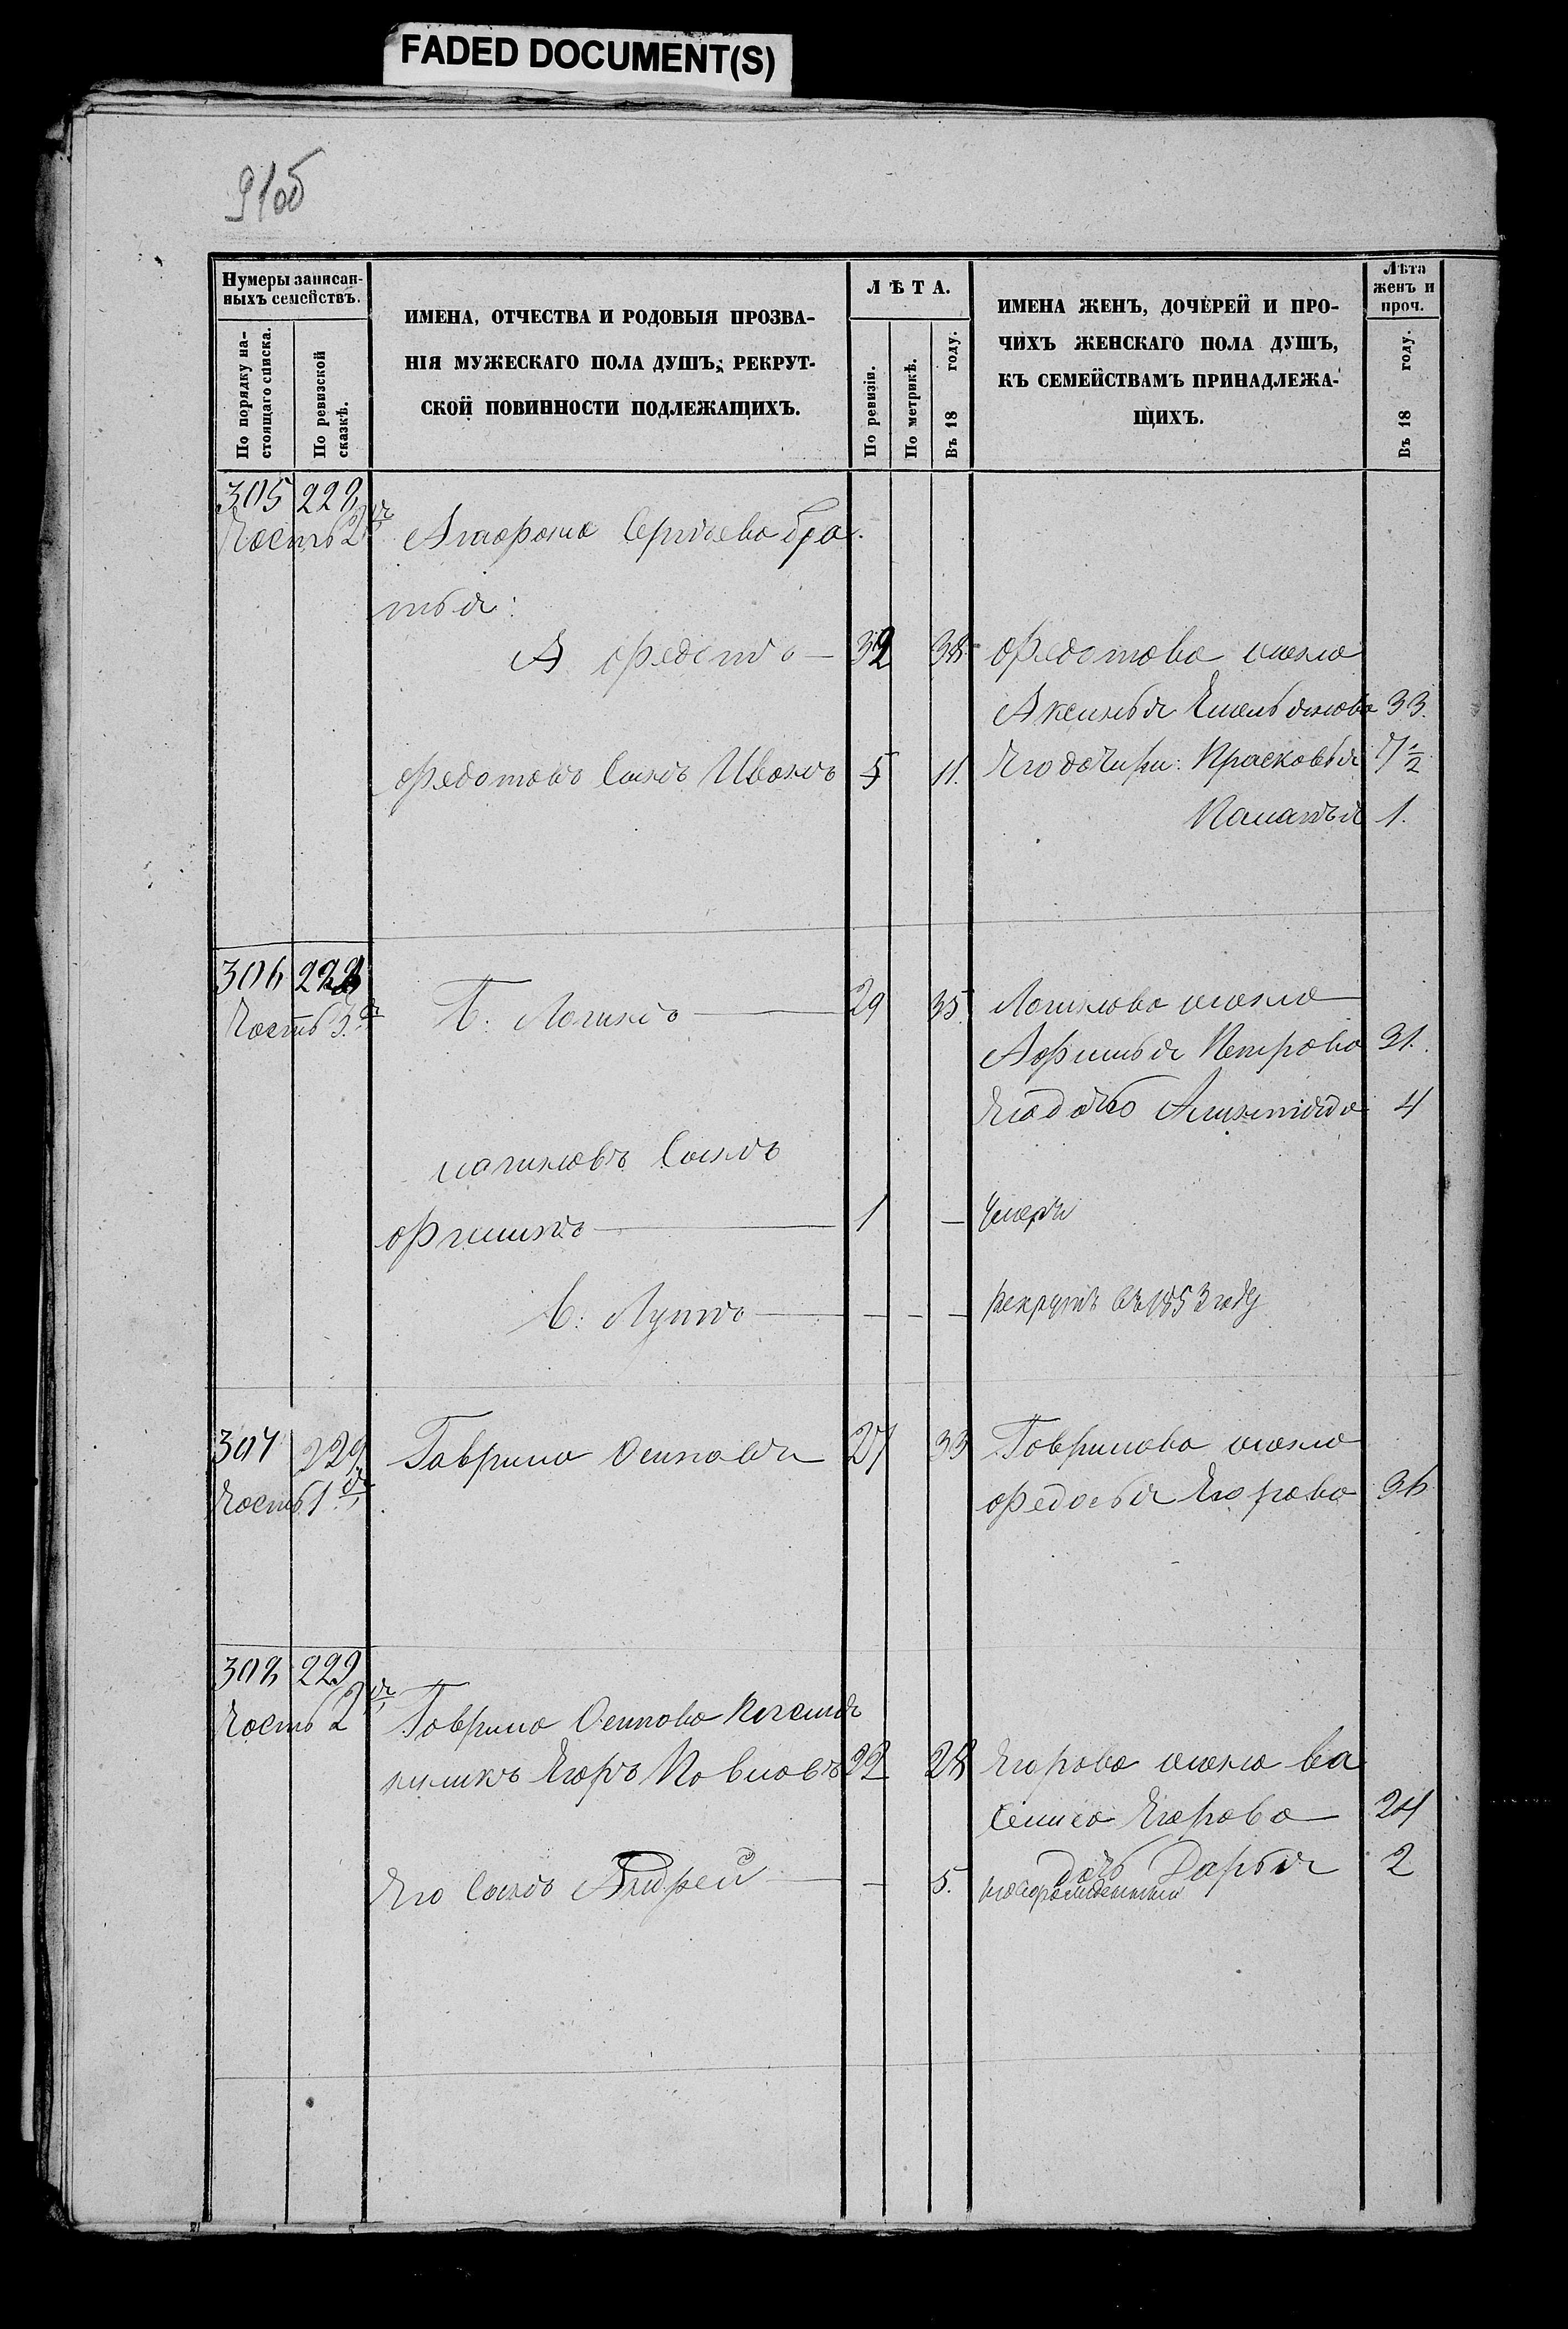 FADED DOCUMENT(S)
91об
Нумеры записан-
ныхъ семействъ.
По порядку на-
стоящаго списка.
По ревизской
сказкѣ.
ИМЕНА, ОТЧЕСТВА И РОДОВЫЯ ПРОЗВА-
НІЯ МУЖЕСКАГО ПОЛА ДУШЪ, РЕКРУТ-
СКОЙ ПОВИННОСТИ ПОДЛЕЖАЩИХЪ.
ЛѢТА.
По ревизіи.
По метрикѣ.
Въ 18 году.
ИМЕНА ЖЕНЪ, ДОЧЕРЕЙ И ПРО-
ЧИХЪ ЖЕНСКАГО ПОЛА ДУШЪ,
КЪ СЕМЕЙСТВАМЪ ПРИНАДЛЕЖА-
ЩИХЪ.
Лѣта
женъ и
проч.
Въ 18 году.
305 228
Часть 2я Агафона Сергѣева бра
тья:
А Федотъ 32 38 Федотова жена
Аксинья Емельянова 33.
Федотовъ Сынъ Иванъ 5 11. Его дочери: Прасковья 7 1/2
Маланья 1.
306 228
Часть 3я Б: Логинъ 29 35. Логинова жена
Афимья Петрова 31.
Его дочь 4
логиновъ Сынъ
1 — умеръ
В: Лупъ — — — рекрутъ въ 1853 году
307 229 Гаврило Осиповъ 27 33 Гаврилова жена
Часть 1я Федосья Егорова 36
308 229
Часть 2я Гаврила Осипова племя
нникъ Егоръ Павловъ 22 28 Егорова жена Ва
силиса Егорова 24
дочь Дарья 2
Его Сынъ Андрей — 5. новорожденный